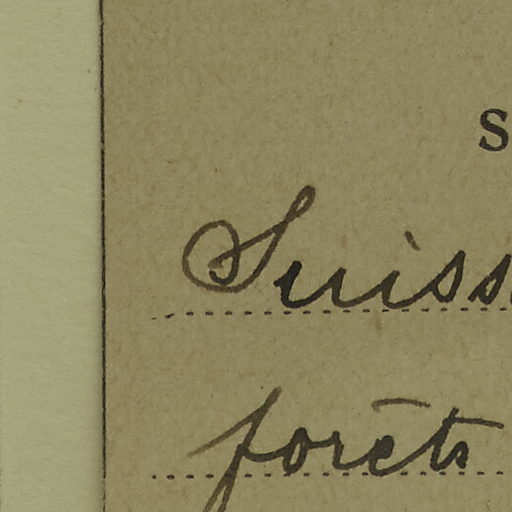 S
Suiss
forêts